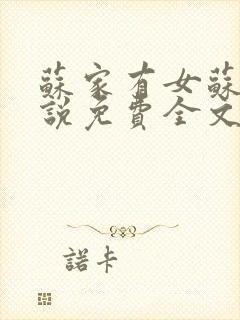 蘇家有女蘇
說免費全文
諾卡